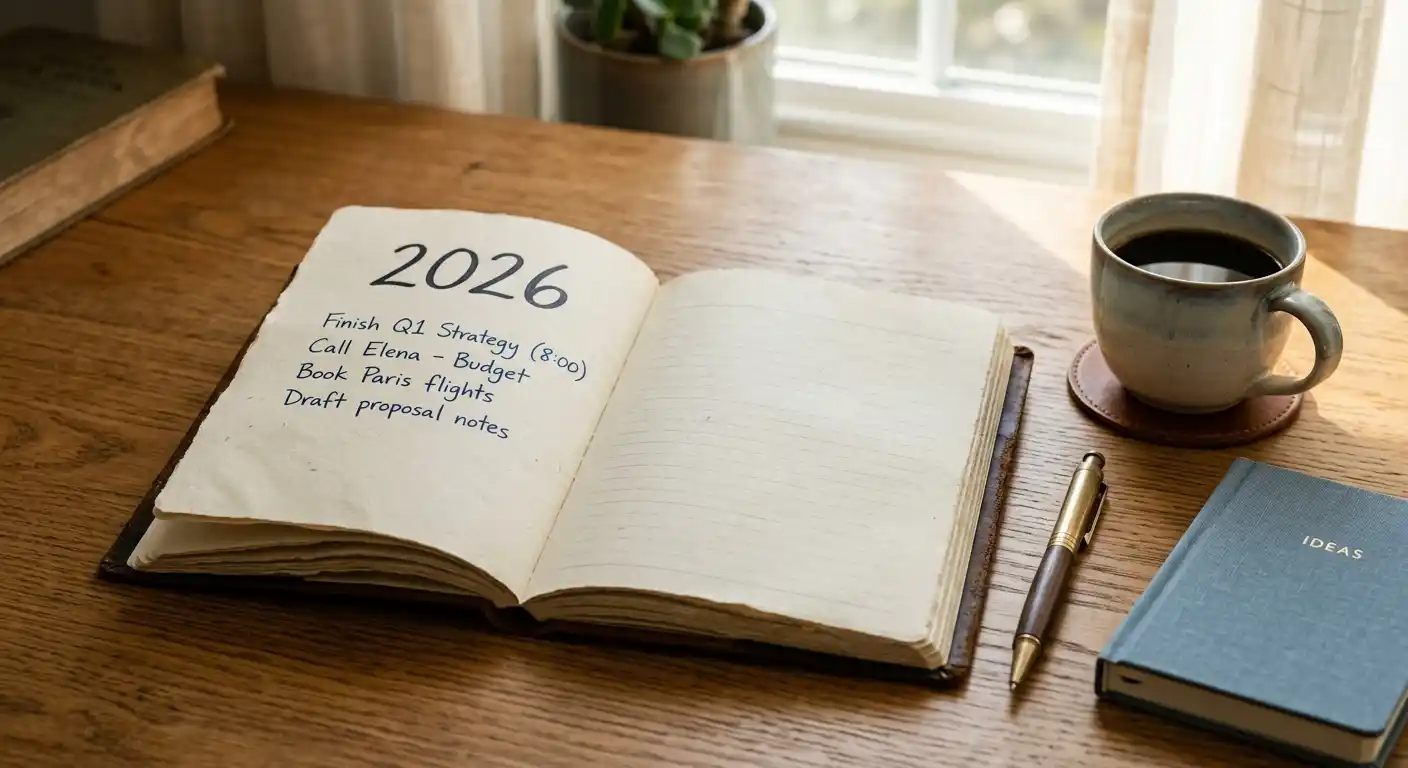 2026
Finish Q1 Strategy (8:00)
Call Elena – Budget
Book Paris flights
Draft proposal notes
IDEAS